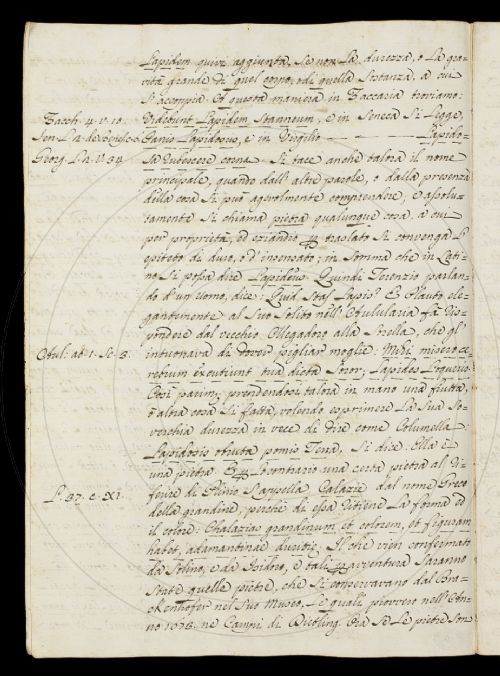 Lapidem quivi aggiunta, se non la durezza, o la gra-
vità grande di quel corpo, o di quella sostanza, a cui
si accoppia. A questa maniera in Zaccaria troviamo:
Zacch. 4. v. 10.
Videbunt Lapidem stanneum; e in Seneca si legge,
Lapidosus, e in Virgilio Lapido-
Georg. L. 34
sa rubescere corna. Si tace anche talora il nome
principale, quando dall' altre parole, o dalla presenza
della cosa si può agevolmente comprendere, e assolu-
tamente si chiama pietra qualunque cosa, a cui
per proprietà, od eziandio per traslato si convenga l'
epiteto di duro, o d' insensato; in somma che in Lati-
no si possa dire Lapideus. Quindi Terenzio parlan-
do d' un Uomo, dice: Quid stas Lapis? E Plauto ele-
gantemente al suo solito nell' Aulularia fa ris-
pondere dal vecchio Megadoro alla sorella, che gl'
intuonava di dover pigliar moglie:
Aul. at. 1. Sc. 3.
Mihi misero ce-
rebrum excutiunt tua dicta soror; Lapides loqueris.
Così parim. prendendosi talora in mano una frutta,
o altra cosa sì fatta, volendo esprimere la sua so-
verchia durezza in vece di dire come Columella:
Lapidosis obruta pomis Terra, si dice: Ella è
una pietra. Per lo contrario una certa pietra al ri-
ferire di Plinio s'appella Calazie dal nome Greco
L. 37. c. XI.
della grandine, perchè di essa ritiene la forma ed
il colore. Chalazias grandinum et colorem, et figuram
habet, adamantinae duritiae. Il che vien confermato
da Solino, e da Isidoro, e tali per avventura saranno
state quelle pietre, che si conservavano dal Bra-
kenhofer nel suo Museo, le quali piovvero nell' An-
no 1678. ne Campi di Ora se le pietre son